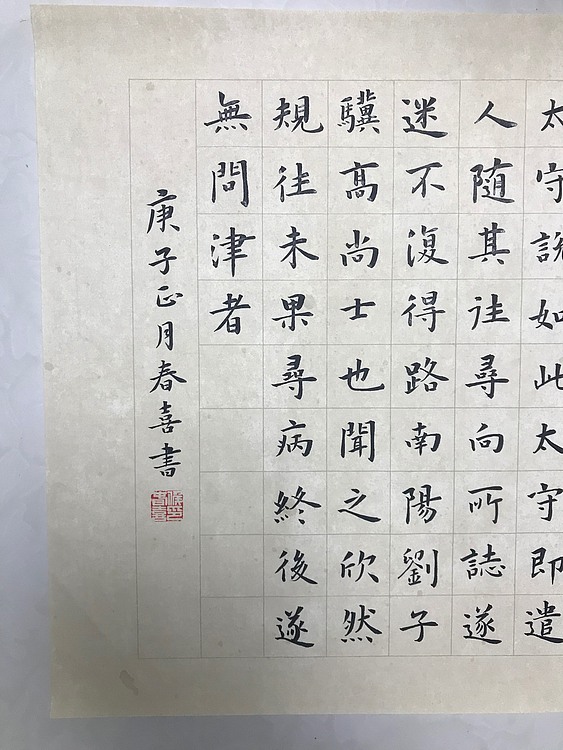 太守說如此太守即遣
人随其往尋向所誌遂
迷不復得路南陽劉子
驥髙尚士也聞之欣然
規往未果尋病終後遂
無問津者
庚子正月春喜書